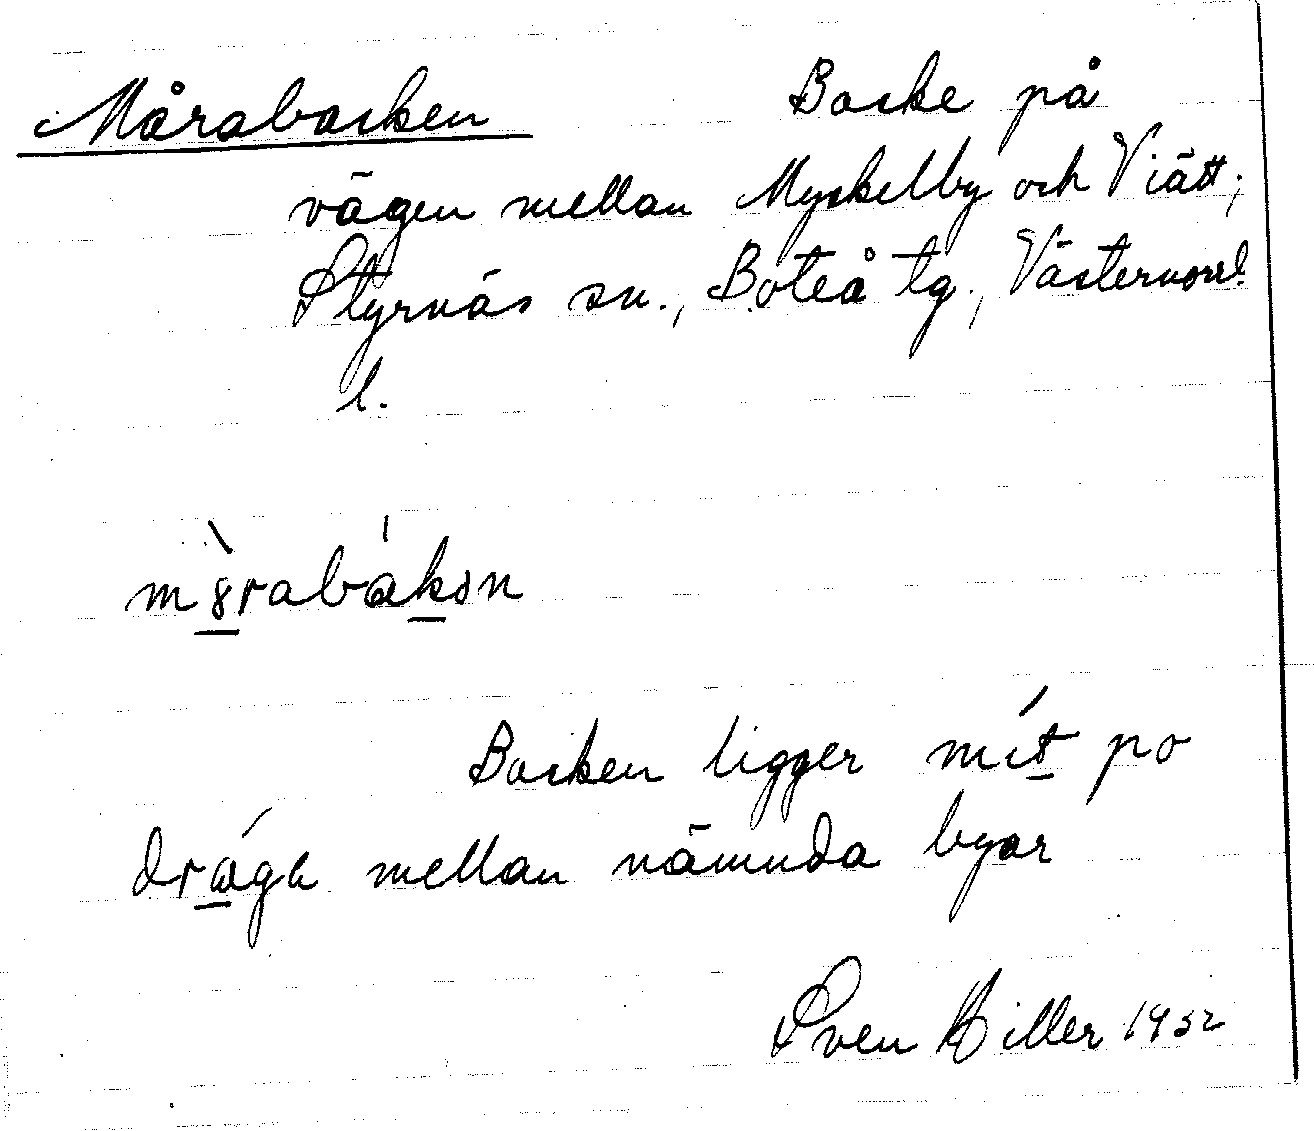 Mårabacken Backe på
vägen mellan Myckelby och Viätt,
Styrnäs sn., Boteå tg., Västernorrl.
l.
mɞ̀rabákən
Backen ligger mít po
drága mellan nämnda byar
Sven Hiller 1932